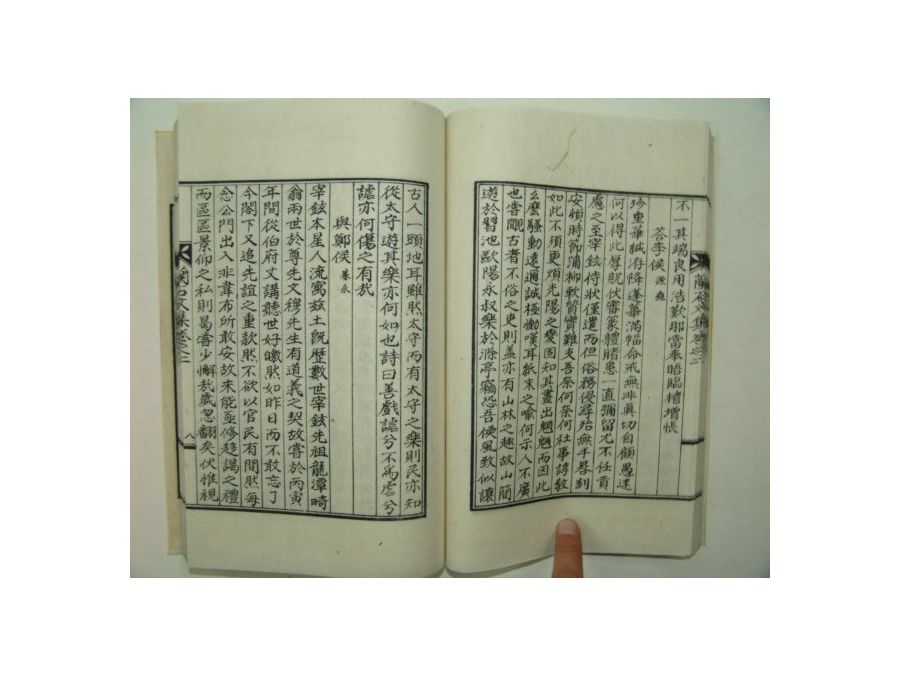 不一其端良用浩歎那當奉晤臨楮增悵
荅李侯 源兢
珍重華械府降蓬蓽滿幅命戒無非眞切自顧愚迷
何以得此厚貺伏審篆體睹患一直彌留尤不任貢
慮之至宰鉉侍狀僅遣而但俗務侵尋殆無半晷刻
安頓時節蒲柳軟質實難支吾奈何奈何社事諄敎
如此不須更煩光陽之憂固知其盡出魍魎而因此
么麼騷動遠邇誠極慟嘆耳紙末之喩何示人不廣
也嘗觀古者不俗之吏則盖亦有山林之趣故山簡
遊於習池歐陽永叔樂於滁亭竊恐吾侯風致似讓
古人一頭地耳雖然太守而有太守之樂則民亦知
從太守遊耳樂亦何如也詩曰善戲謔兮不爲虐兮
謔亦何傷之有哉
與鄭侯 基永
宰鉉本星人流寓玆土旣歷數世宰鉉先祖龍潭畸
翁兩世於尊先文穆先生有道義之契故嘗於丙寅
年間從伯府文講聽世好囑然如昨日而不敢忘了
今閤下又追先誼之重款然不欲以官民有間然每
念公門出入非韋布所敢安故未能亟修趨謁之禮
而區區景仰之私則曷嘗少懈哉歲忽翻矣伏惟視
文集卷之三
八